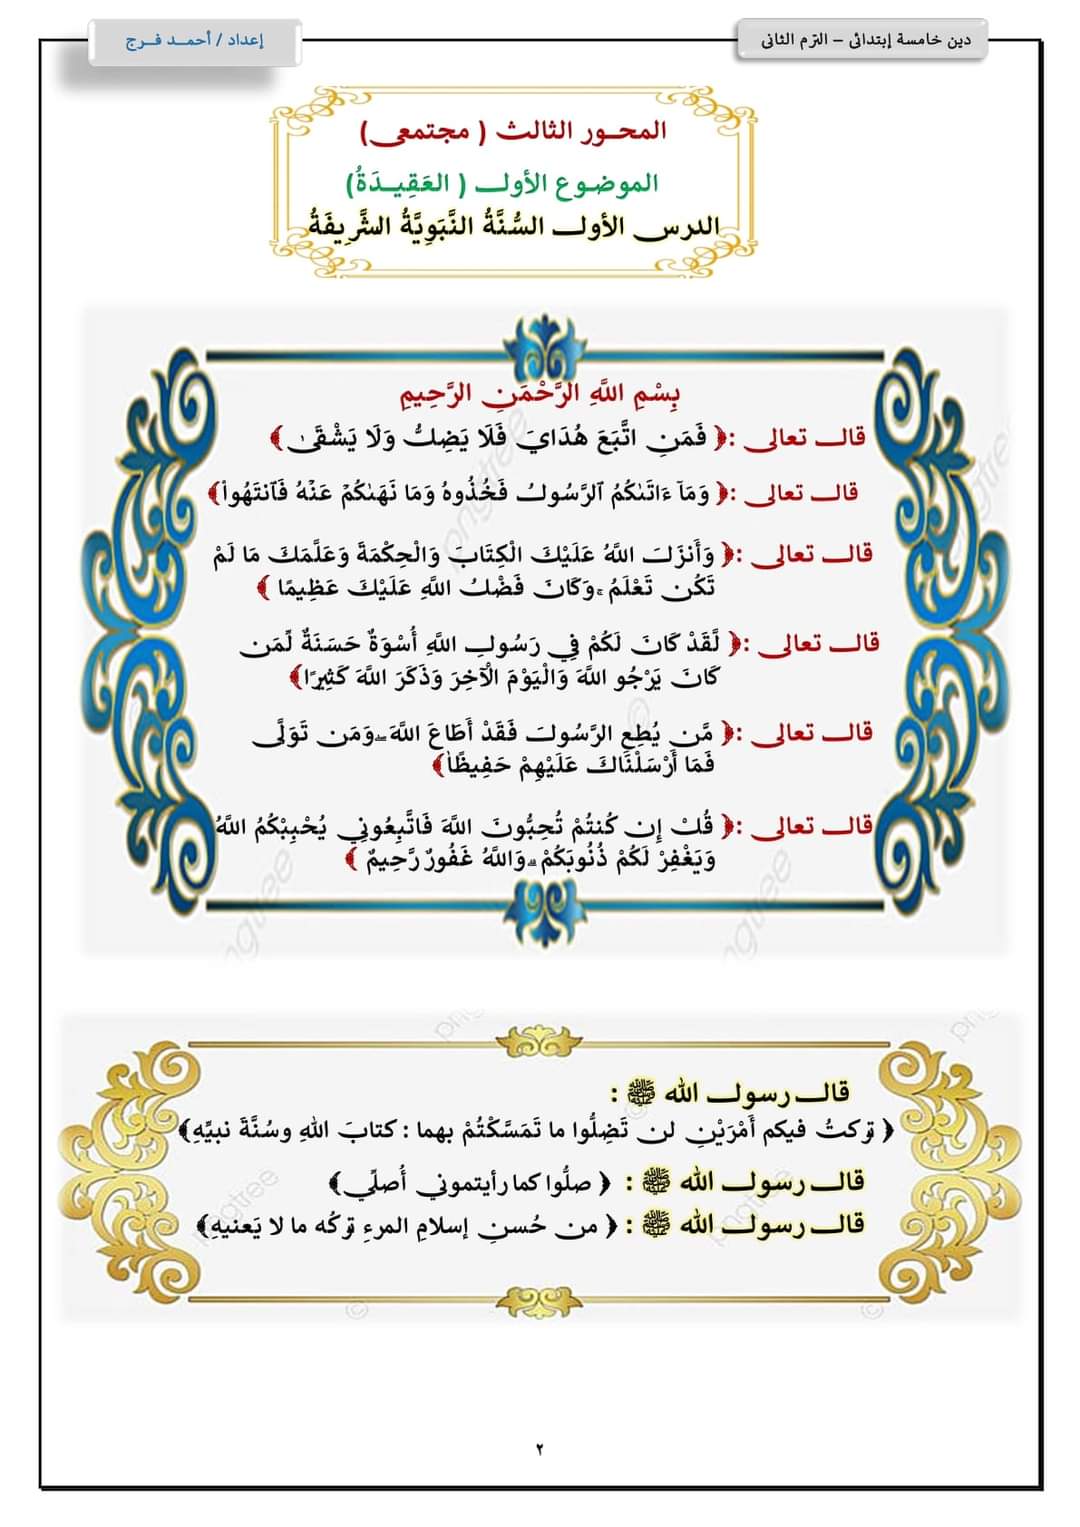 دين خامسة إبتدائى – الترم الثانى
إعداد / أحمــد فــرج
المحــور الثالث ( مجتمعى)
الموضـوع الأول ( العَقِيـدَةُ)
الدرس الأول السُّنَّةُ النَّبَوِيَّةُ الشَّرِيفَةُ
بِسْمِ اللَّهِ الرَّحْمَنِ الرَّحِيمِ
قال تعالى :﴿ فَمَنِ اتَّبَعَ هُدَايَ فَلَا يَضِلُّ وَلَا يَشْقَىٰ ﴾
قال تعالى :﴿ وَمَآ ءَاتَىٰكُمُ ٱلرَّسُولُ فَخُذُوهُ وَمَا نَهَىٰكُمْ عَنْهُ فَٱنتَهُوا۟﴾
قال تعالى :﴿ وَأَنزَلَ اللَّهُ عَلَيْكَ الْكِتَابَ وَالْحِكْمَةَ وَعَلَّمَكَ مَا لَمْ
تَكُن تَعْلَمُ ۚ وَكَانَ فَضْلُ اللَّهِ عَلَيْكَ عَظِيمًا ﴾
قال تعالى :﴿ لَّقَدْ كَانَ لَكُمْ فِي رَسُولِ اللَّهِ أُسْوَةٌ حَسَنَةٌ لِّمَن
كَانَ يَرْجُو اللَّهَ وَالْيَوْمَ الْآخِرَ وَذَكَرَ اللَّهَ كَثِيرًا﴾
قال تعالى :﴿ مَّن يُطِعِ الرَّسُولَ فَقَدْ أَطَاعَ اللَّهَ ۖ وَمَن تَوَلَّى
فَمَا أَرْسَلْنَاكَ عَلَيْهِمْ حَفِيظًا﴾
قال تعالى :﴿ قُلْ إِن كُنتُمْ تُحِبُّونَ اللَّهَ فَاتَّبِعُونِي يُحْبِبْكُمُ اللَّهُ
وَيَغْفِرْ لَكُمْ ذُنُوبَكُمْ ۗ وَاللَّهُ غَفُورٌ رَّحِيمٌ ﴾
قال رسول الله ﷺ :
﴿ تركتُ فيكم أَمْرَيْنِ لن تَضِلُّوا ما تَمَسَّكْتُمْ بهما : كتابَ اللهِ وسُنَّةَ نبيِّهِ﴾
قال رسول الله ﷺ : ﴿ صلُّوا كما رأيتموني أُصلِّي﴾
قال رسول الله ﷺ : ﴿ من حُسنِ إسلامِ المرءِ تركُه ما لا يَعنيهِ﴾
٢